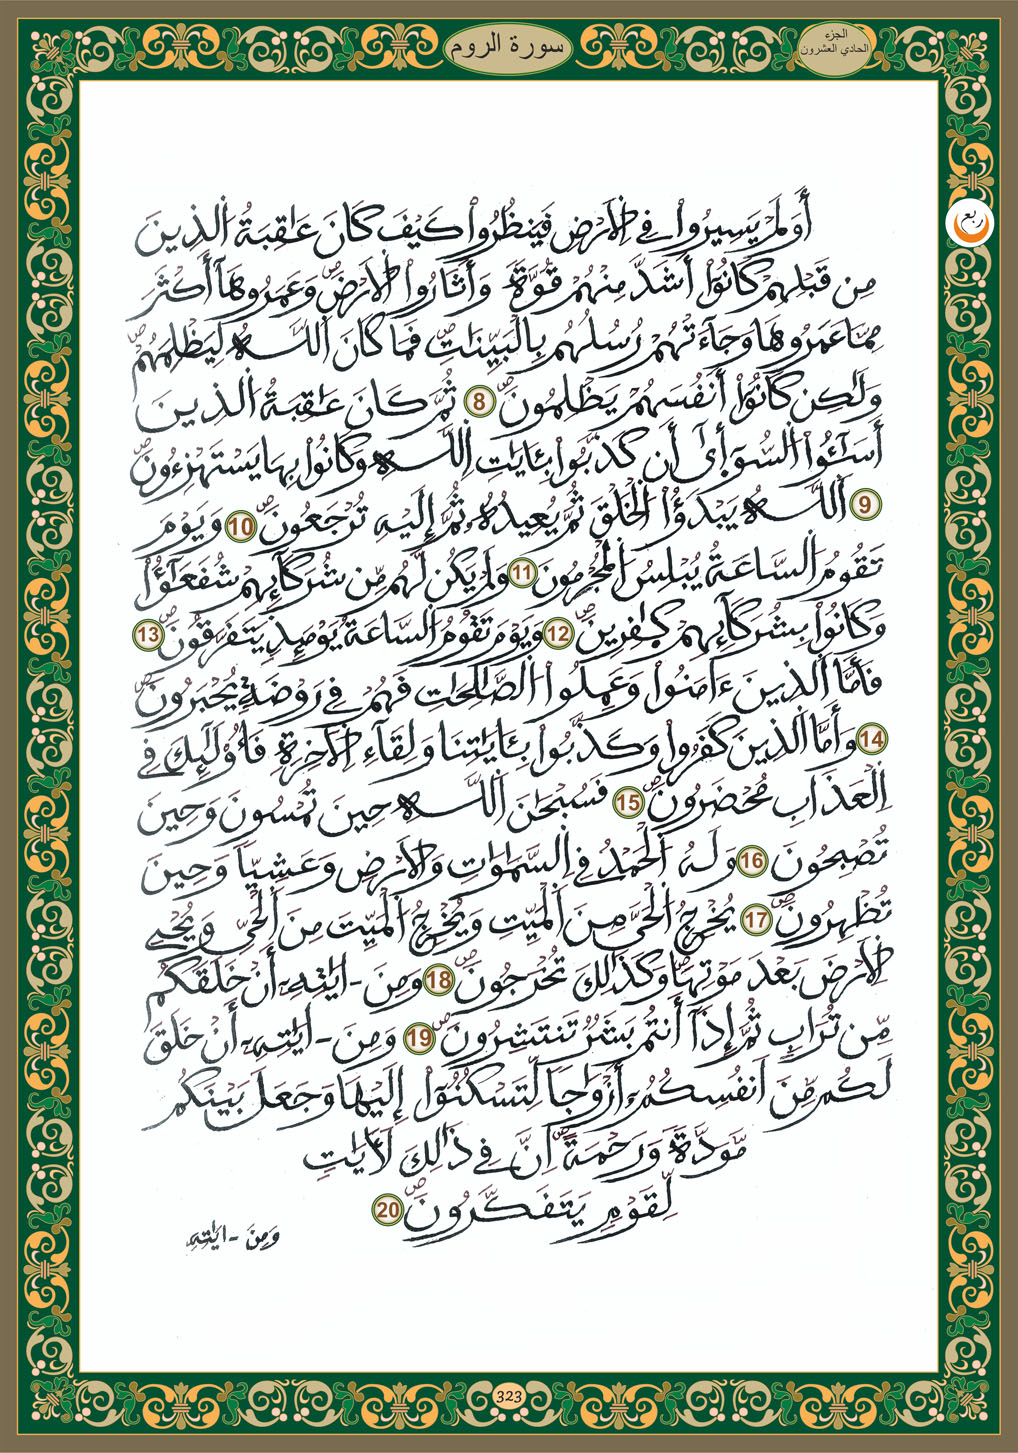 سورة الروم
الجزء
الحادي العشرون
ربع
أَوَلَمْ يَسِيرُواْ فِي اِلَارْضِ فَيَنظُرُواْ كَيْفَ كَانَ عَٰقِبَةُ اُلذِينَ
مِن قَبْلِهِمْ كَانُوٓاْ أَشَدَّ مِنْهُمْ قُوَّةٗ وَأَثَارُواْ الَارْضَ وَعَمَرُوهَآ أَكْثَرَ
مِمَّا عَمَرُوهَا وَجَآءَتْهُمْ رُسُلُهُم بِالْبَيِّنَٰتِ فَمَا كَانَ اَللَّهُ لِيَظْلِمَهُمْ
وَلَٰكِن كَانُوٓاْ أَنفُسَهُمْ يَظْلِمُونَ 8 ثُمَّ كَانَ عَٰقِبَةُ اُلذِينَ
أَسَٰٓـُٔواْ اُلسُّوٓأَىٰٓ أَن كَذَّبُواْ بِـَٔايَٰتِ اِللَّهِ وَكَانُواْ بِهَا يَسْتَهْزِءُونَ
9 اَللَّهُ يَبْدَؤُاْ اُلْخَلْقَ ثُمَّ يُعِيدُهُۥ ثُمَّ إِلَيْهِ تُرْجَعُونَ 10 وَيَوْمَ
تَقُومُ اُلسَّاعَةُ يُبْلِسُ اُلْمُجْرِمُونَ 11 وَلَمْ يَكُن لَّهُم مِّن شُرَكَآئِهِمْ شُفَعَٰٓؤُاْ
وَكَانُواْ بِشُرَكَآئِهِمْ كَٰفِرِينَ 12 وَيَوْمَ تَقُومُ اُلسَّاعَةُ يَوْمَئِذٖ يَتَفَرَّقُونَ 13
فَأَمَّا اَلذِينَ ءَامَنُواْ وَعَمِلُواْ اُلصَّٰلِحَٰتِ فَهُمْ فِي رَوْضَةٖ يُحْبَرُونَ
14 وَأَمَّا اَلذِينَ كَفَرُواْ وَكَذَّبُواْ بِـَٔايَٰتِنَا وَلِقَآءِ اِلَاخِرَةِ فَأُوْلَٰٓئِكَ فِي
اِلْعَذَابِ مُحْضَرُونَ 15 فَسُبْحَٰنَ اَللَّهِ حِينَ تُمْسُونَ وَحِينَ
تُصْبِحُونَ 16 وَلَهُ اُلْحَمْدُ فِي اِلسَّمَٰوَٰتِ وَالَارْضِ وَعَشِيّٗا وَحِينَ
تُظْهِرُونَ 17 يُخْرِجُ اُلْحَيَّ مِنَ اَلْمَيِّتِ وَيُخْرِجُ اُلْمَيِّتَ مِنَ اَلْحَيِّ وَيُحْيِ
اِلَارْضَ بَعْدَ مَوْتِهَا وَكَذَٰلِكَ تُخْرَجُونَ 18 وَمِنَ ـ ايَٰتِهِۦٓ أَنْ خَلَقَكُم
مِّن تُرَابٖ ثُمَّ إِذَآ أَنتُم بَشَرٞ تَنتَشِرُونَ 19 وَمِنَ ـ ايَٰتِهِۦٓ أَنْ خَلَقَ
لَكُم مِّنَ اَنفُسِكُمُۥٓ أَزْوَٰجاٗ لِّتَسْكُنُوٓاْ إِلَيْهَا وَجَعَلَ بَيْنَكُم
مَّوَدَّةٗ وَرَحْمَةًۖ اِنَّ فِي ذَٰلِكَ لَأٓيَٰتٖ
لِّقَوْمٖ يَتَفَكَّرُونَ 20
وَمِنَ ـ ايَٰتِهِۦ
323